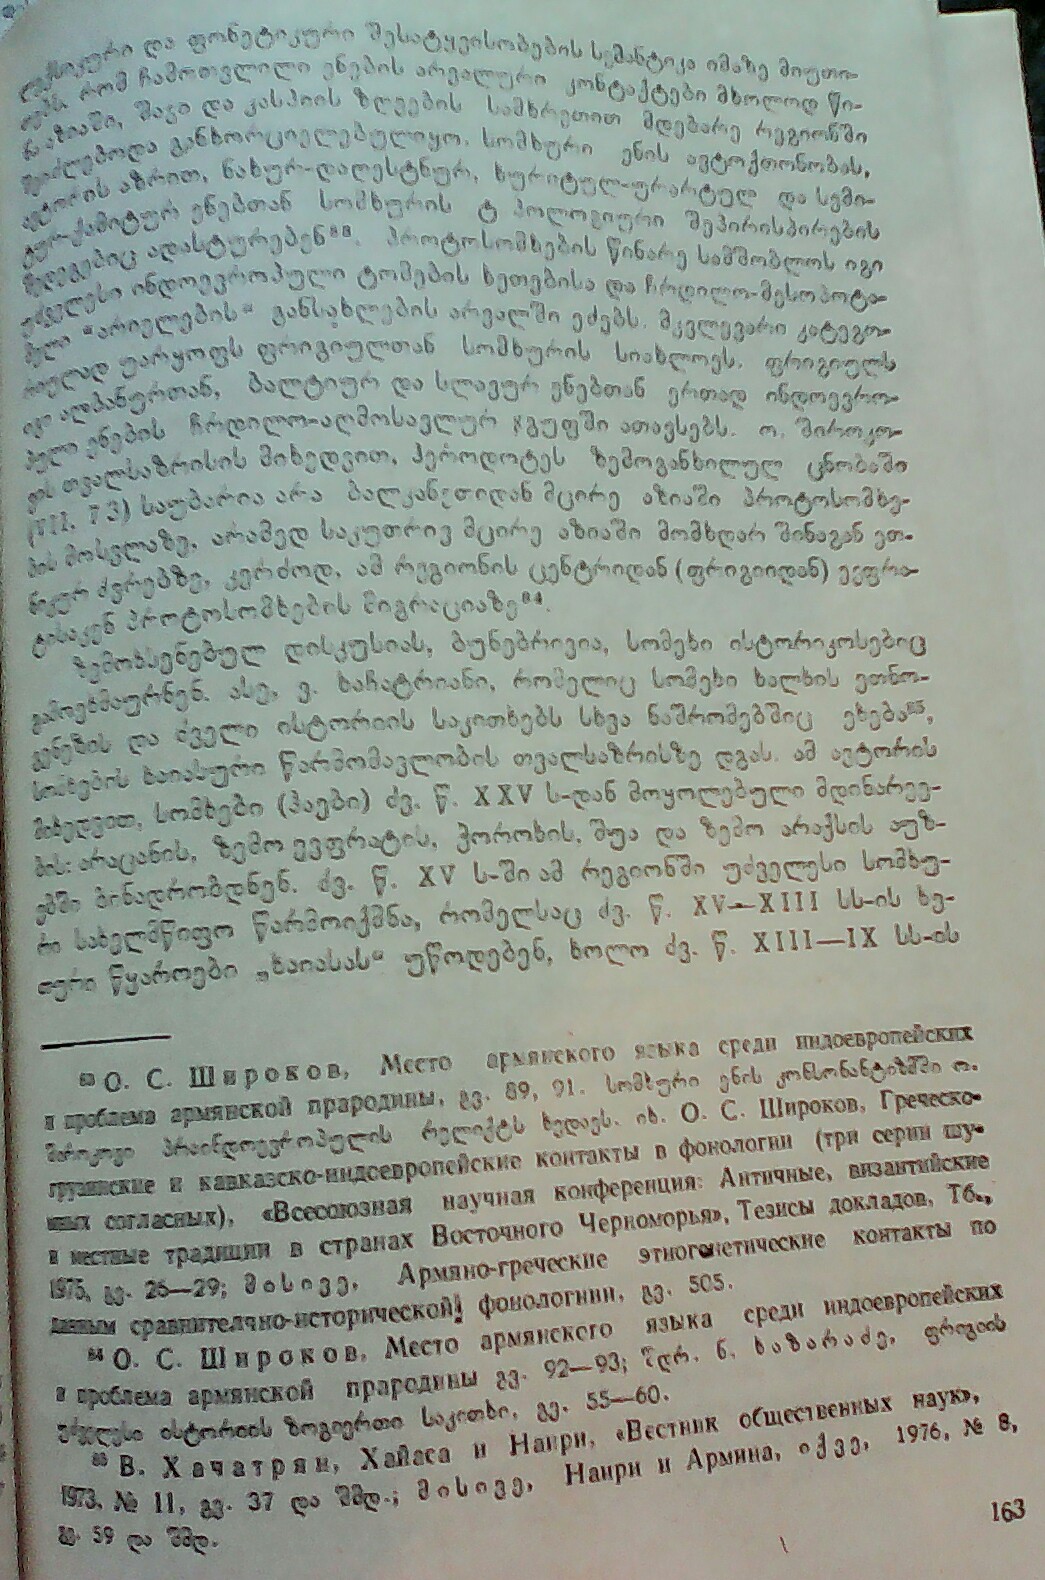 ლექსიკური და ფონეტიკური შესატყვისობების სემანტიკა იმაზე მიუთი-
თებს, რომ ჩამოთვლილი ენების არეალური კონტაქტები მხოლოდ წი-
ნა აზიაში, შავი და კასპიის ზღვების სამხრეთით მდებარე რეგიონში
შეიძლებოდა განხორციელებულიყო. სომხური ენის ავტოქთონობას,
ავტორის აზრით, ნახურ-დაღესტნურ, ხურიტულ-ურარტულ და სემი-
ტურ-ქამიტურ ენებთან სომხურის ტიპოლოგიური შეპირისპირების
შედეგებიც ადასტურებენ⁸³. პროტოსომხების წინარე სამშობლოს იგი
უძველესი ინდოევროპული ტომების ხეთებისა და ჩრდილო-მესოპოტა-
მელი "არიელების" განსახლების არეალში ეძებს. მკვლევარი კატეგო-
რიულად უარყოფს ფრიგიულთან სომხურის სიახლოეს. ფრიგიულს
იგი ალბანურთან, ბალტიურ და სლავურ ენებთან ერთად ინდოევრო-
პული ენების ჩრდილო-აღმოსავლურ ჯგუფში ათავსებს. ო. შიროკო-
ვის თვალსაზრისის მიხედვით, ჰეროდოტეს ზემოგანხილულ ცნობაში
(VII, 73) საუბარია არა ბალკანეთიდან მცირე აზიაში პროტოსომხე-
ბის მოსვლაზე, არამედ საკუთრივ მცირე აზიაში მომხდარ შინაგან ეთ-
ნიკურ ძვრებზე, კერძოდ, ამ რეგიონის ცენტრიდან (ფრიგიიდან) ევფრა-
ტისაკენ პროტოსომხების მიგრაციაზე⁸⁴.
ზემოხსენებულ დისკუსიას, ბუნებრივია, სომეხი ისტორიკოსებიც
გამოეხმაურნენ. ასე, ვ. ხაჩატრიანი, რომელიც სომეხი ხალხის ეთნო-
გენეზის და ძველი ისტორიის საკითხებს სხვა ნაშრომებშიც ეხება⁸⁵,
სომხების ხაიასური წარმომავლობის თვალსაზრისზე დგას. ამ ავტორის
მიხედვით, სომხები (ჰაები) ძვ. წ. XXV ს-დან მოყოლებული მდინარეე-
ბის: არაცანის, ზემო ევფრატის, ჭოროხის, შუა და ზემო არაქსის აუზ-
ებში ბინადრობდნენ. ძვ. წ. XV ს-ში ამ რეგიონში უძველესი სომხუ-
რი სახელმწიფო წარმოიქმნა, რომელსაც ძვ. წ. XV—XIII სს-ის ხე-
თური წყაროები „ხაიასას" უწოდებენ, ხოლო ძვ. წ. XIII—IX სს-ის
⁸³ О. С. Широков, Место армянского языка среди индоевропейских
и проблема армянской прародины, გვ. 89, 91. სომხური ენის კონსონანტიზმში ო.
შიროკოვი პრაინდოევროპულის რელიქტს ხედავს. იხ. О. С. Широков, Греческо-
грузинские и кавказско-индоевропейские контакты в фонологии (три серии шу-
мных согласных), «Всесоюзная научная конференция: Античные, византийские
и местные традиции в странах Восточного Черноморья», Тезисы докладов, Тб.,
1975, გვ. 26—29; მისივე, Армяно-греческие этногенетические контакты по
данным сравнителчно-исторической фонологнии, გვ. 505.
⁸⁴ О. С. Широков, Место армянского языка среди индоевропейских
и проблема армянской прародины გვ. 92—93; შდრ. ნ. ხაზარაძე, ფრიგიის
უძველესი ისტორიის ზოგიერთი საკითხი, გვ. 55—60.
⁸⁵ В. Хачатрян, Хайаса и Наири, «Вестник общественных наук»,
1973, № 11, გვ. 37 და შმდ.; მისივე, Наири и Армина, იქვე, 1976, № 8,
გვ. 59 და შმდ.
163